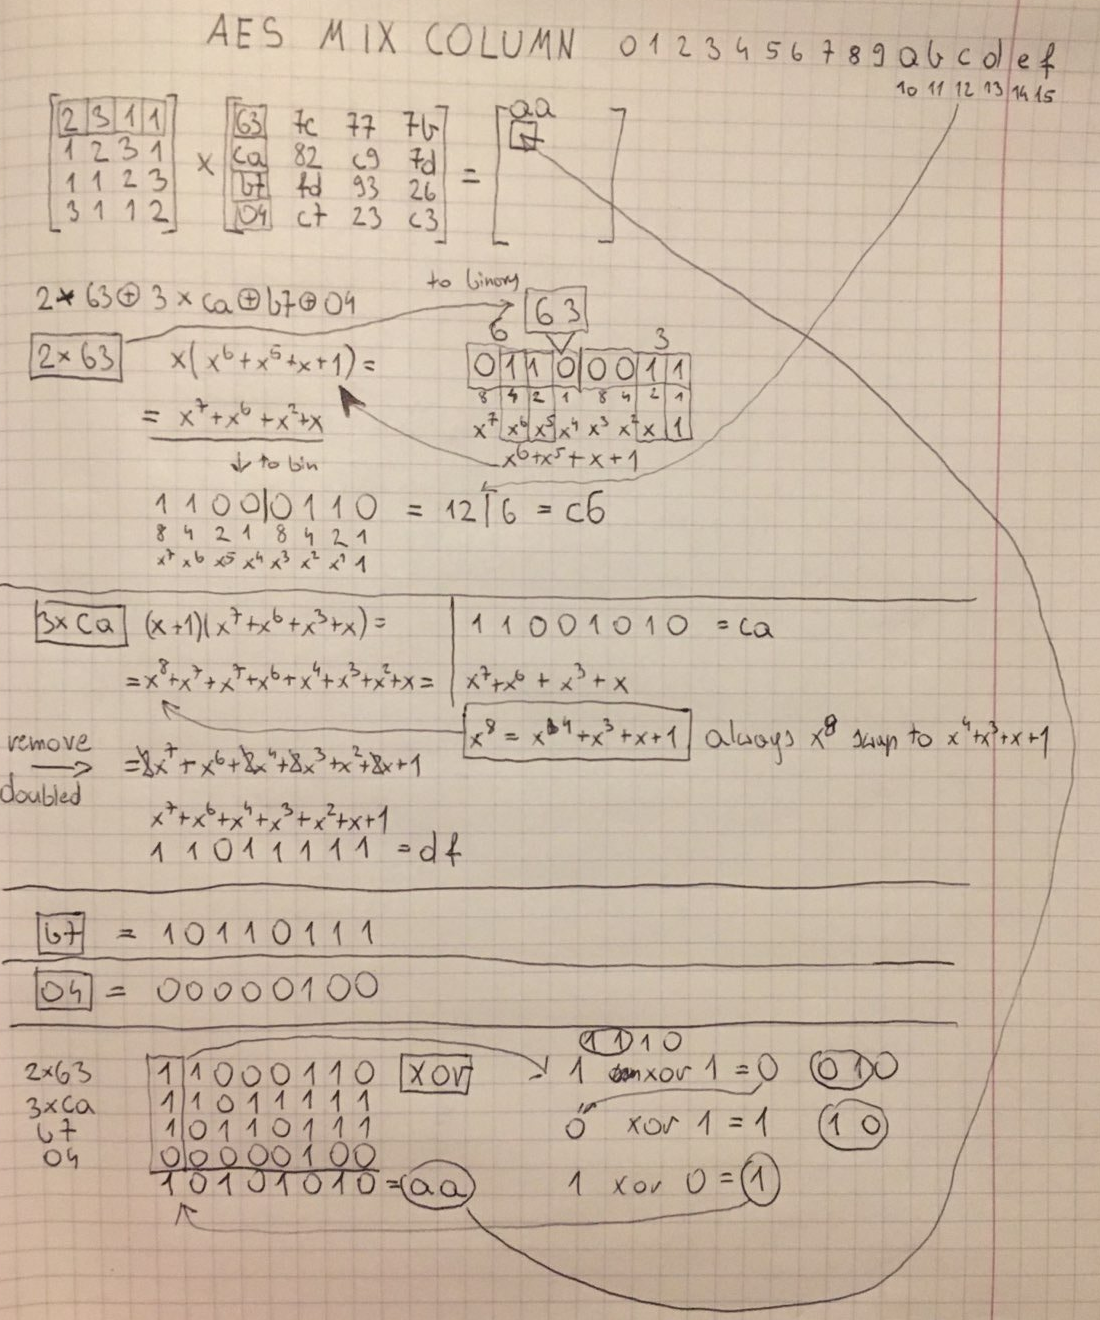 AES MIX COLUMN 0 1 2 3 4 5 6 7 8 9 a b c d e f
10 11 12 13 14 15
2 3 1 1
1 2 3 1
1 1 2 3
3 1 1 2
×
63 7c 77 7b
ca 82 c9 7d
b7 fd 93 26
04 c7 23 c3
=
aa
2 * 63 ⊕ 3 × ca ⊕ b7 ⊕ 04
to binary
63
6 3
2×63 x(x⁶+x⁵+x+1)=
0 1 1 0 0 0 1 1
8 4 2 1 8 4 2 1
= x⁷+x⁶+x²+x
x⁷ x⁶ x⁵ x⁴ x³ x² x 1
↓ to bin
x⁶+x⁵+x+1
1 1 0 0|0 1 1 0 = 12|6 = c6
8 4 2 1 8 4 2 1
x⁷ x⁶ x⁵ x⁴ x³ x² x¹ 1
3×ca (x+1)(x⁷+x⁶+x³+x)=
1 1 0 0 1 0 1 0 = ca
=x⁸+x⁷+x⁷+x⁶+x⁴+x³+x²+x=
x⁷+x⁶+x³+x
x⁸ = x⁴+x³+x+1 always x⁸ swap to x⁴+x³+x+1
remove
→
doubled
=2x⁷+x⁶+2x⁴+2x³+x²+2x+1
x⁷+x⁶+x⁴+x³+x²+x+1
1 1 0 1 1 1 1 1 = df
b7 = 1 0 1 1 0 1 1 1
04 = 0 0 0 0 0 1 0 0
2×63 1 1 0 0 0 1 1 0 xor
3×ca 1 1 0 1 1 1 1 1
b7 1 0 1 1 0 1 1 1
04 0 0 0 0 0 1 0 0
1 0 1 0 1 0 1 0 = aa
1 1 1 0
1 xor 1 = 0 0 1 0
0 xor 1 = 1 1 0
1 xor 0 = 1